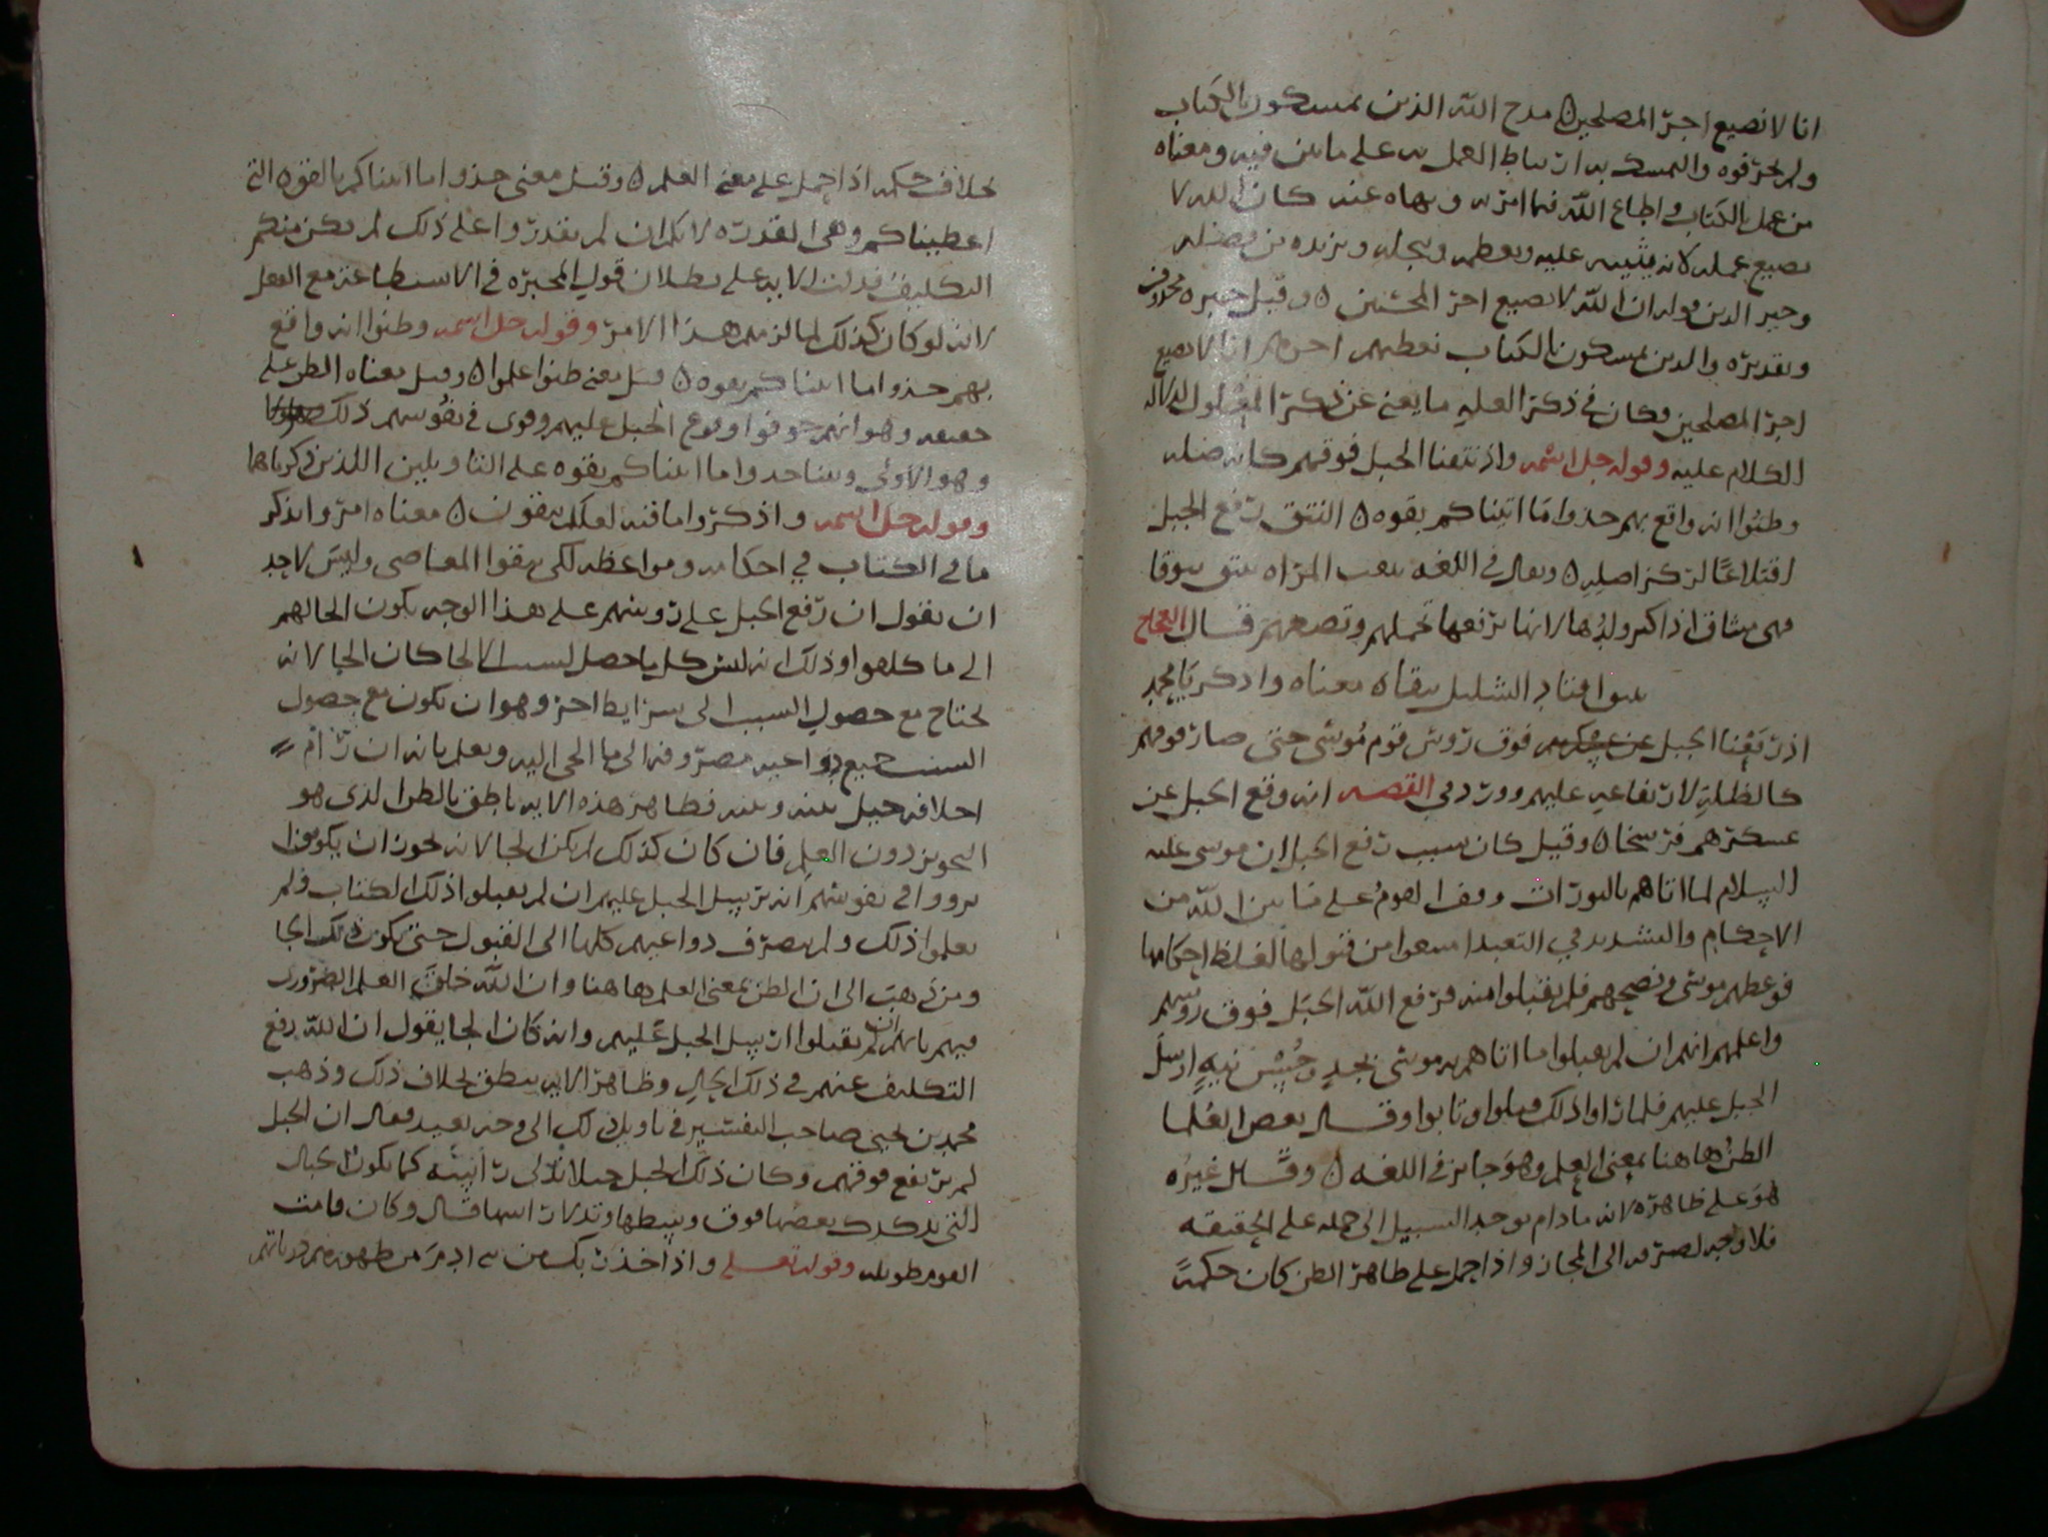 انا لا نضيع اجر المصلحين ۵ مدح الله الذين يمسكون بالكتاب
ولم يحرفوه والتمسك به ارتباط العمل به على ما بين فيه ومعناه
من عمل بالكتاب واطاع الله فيما امر به ونهاه عنه كان الله لا
يضيع عمله لانه يثيبه عليه ويعظمه ويبجله ويزيده من فضله
وخبر الذين قوله ان الله لا نضيع اجر المحسنين ۵ وقيل خبره محذوف
وتقديره والذين يمسكون بالكتاب نعطيهم اجرهم انا لا نضيع
اجر المصلحين فكان في ذكر العلة ما يغني عن ذكر المعلول لدلالة
الكلام عليه وقوله جل اسمه واذ نتقنا الجبل فوقهم كانه ظله
وظنوا انه واقع بهم خذوا ما اتيناكم بقوه ۵ النتق رفع الجبل
اقتلاعا لمركز اصله ۵ ويقال في اللغه نتقت المراه تنتق نتوقا
فهي منتاق اذا كثر ولدها لانها ترفعها بحملهم وتضعهم قال العجاج
اقتاد الشليل نتقاه معناه واذكر يا محمد
اذ رفعنا الجبل عن فوق روس قوم موسى حتى صار فوقهم
كالظلة لارتفاعه عليهم وورد في القصه انه وقع الجبل عن
عسكرهم فرسخا ۵ وقيل كان سبب رفع الجبل ان موسى عليه
السلام لما اتاهم بالتوراة ووقف القوم على ما بين الله من
الاحكام والتشديد في التعبد امتنعوا من قبولها لغلظ احكامها
فوعظهم موسى ونصحهم فلم يقبلوا منه فرفع الله الجبل فوق روسهم
واعلمهم انهم ان لم يقبلوا ما اتاهم به موسى بجد وحسن نيه ارسل
الجبل عليهم فلما راوا ذلك قبلوا وتابوا وقال بعض العلما
الظن هاهنا بمعنى العلم وهو جايز في اللغه ۵ وقال غيره
هو على ظاهره لانه ما دام يوجد السبيل الى حمله على الحقيقه
فلا وجه لصرفه الى المجاز واذا حمل على ظاهر الظن كان حكمه
بخلاف حكمه اذا حمل على معنى العلم ۵ وقيل معنى خذوا ما اتيناكم بالقوه التي
اعطيناكم وهي القدره لانكم ان لم تقدروا على ذلك لم يكن منكم
التكليف فدلت الايه على بطلان قول المجبره في الاستطاعة مع الفعل
لانه لو كان كذلك لما لزمهم هذا الامر وقوله جل اسمه وظنوا انه واقع
بهم خذوا ما اتيناكم بقوه ۵ قيل يعني ظنوا علموا ۵ وقيل معناه الظن على
حقيقه وهو انهم خوفوا وقوع الجبل عليهم وقوي في نفوسهم ذلك
وهو الاولى وبينا خذوا ما اتيناكم بقوه على التاويلين اللذين ذكرناهما
وقوله جل اسمه واذكروا ما فيه لعلكم تتقون ۵ معناه امروا بذكر
ما في الكتاب في احكامه ومواعظه لكي يتقوا المعاصي وليس لاحد
ان يقول ان رفع الجبل على روسهم على هذا الوجه يكون الجا لهم
الى ما كلفوا وذلك انه ليس كل ما حصل لسبب الالجا كان الجا لانه
يحتاج مع حصول السبب الى شرايط اخر وهو ان تكون مع حصول
السبب جميع دواعيه مصروفه الى ما الجي اليه ويعلم بانه ان رام
خلافه حيل بينه وبينه فظاهر هذه الايه ناطق بالظن الذي هو
التجويز دون العلم فان كان كذلك لم يكن الجا لانه يجوز ان يكونوا
في نفوسهم انه يرسل الجبل عليهم ان لم يقبلوا ذلك الكتاب فلم
يعلموا ذلك ولم يصرف دواعيهم كلها الى القبول حتى يكون ذلك الجا
ومن ذهب الى ان الظن بمعنى العلم هاهنا وان الله خلق العلم الضروري
فيهم بانهم ان لم يقبلوا ارسل الجبل عليهم وانه كان الجا يقول ان الله رفع
التكليف عنهم في ذلك الحال وظاهر الايه ينطق بخلاف ذلك وذهب
محمد بن يحيى صاحب التفسير في تاويل ذلك الى وجه بعيد فقال ان الجبل
لم يرتفع فوقهم وكان ذلك الجبل جبلا كما تكون الجبال
التي تدكدك بعضها فوق وكان قامت
القوم طويله وقوله تعالى واذ اخذ ربك من بني ادم من ظهورهم ذرياتهم